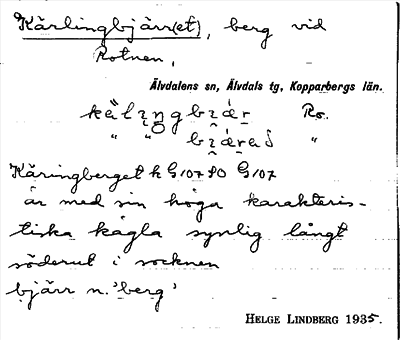 Kärlingbjärr(et), berg vid
Rotnen,
Älvdalens sn, Älvdals tg, Kopparbergs län.
Ro.
" " "
Käringberget h G107 SO G107
är med sin höga karakteris-
tiska kägla synlig långt
söderut i socknen
bjärr n. 'berg'
HELGE LINDBERG 1935.